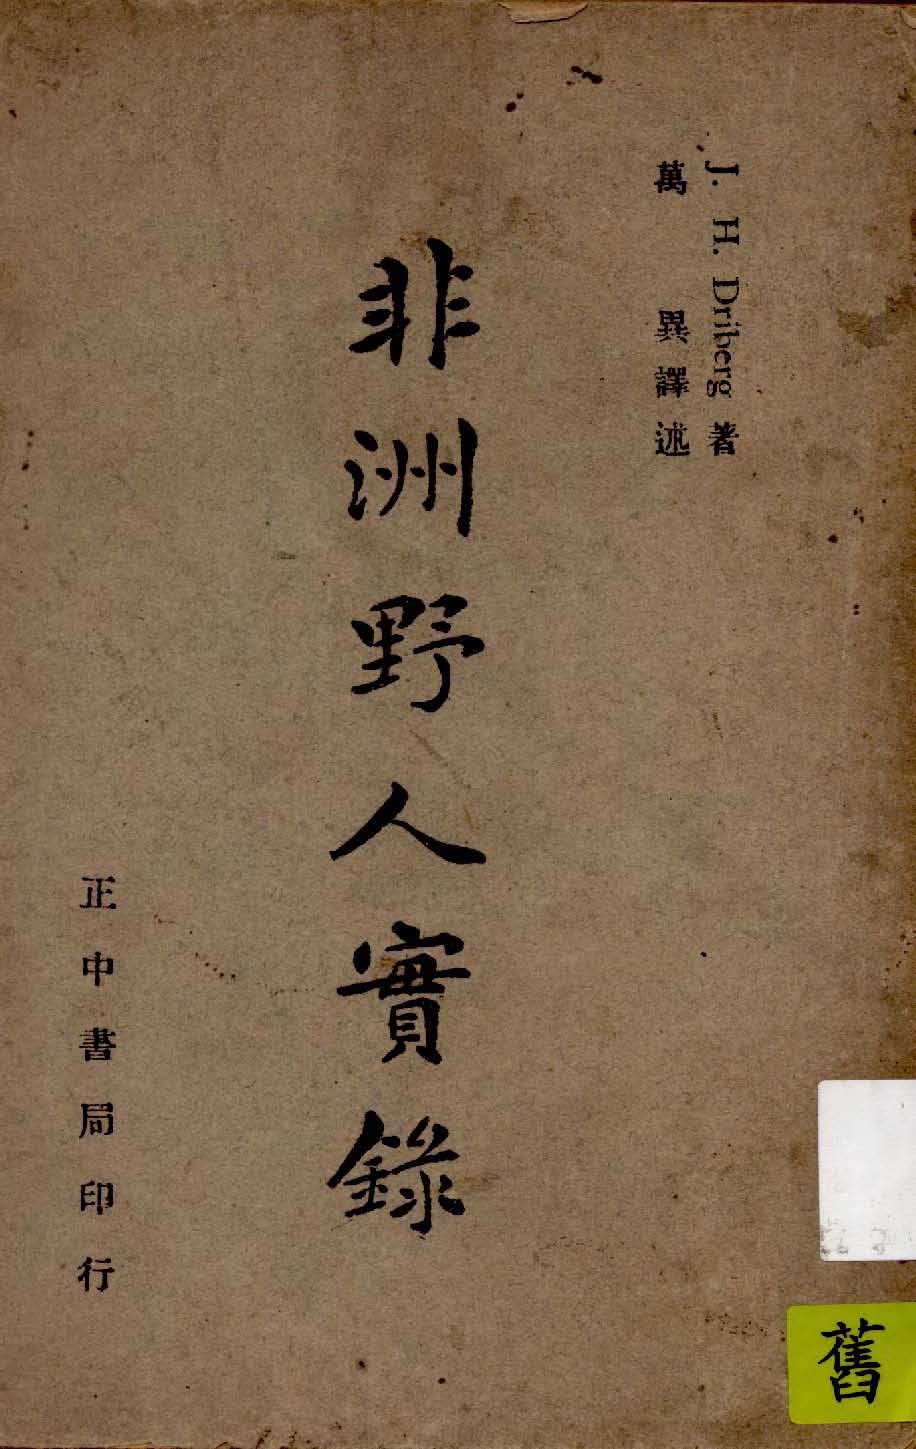 J. H. Driberg 著
萬異譯述
非洲野人實錄
正中書局印行
舊